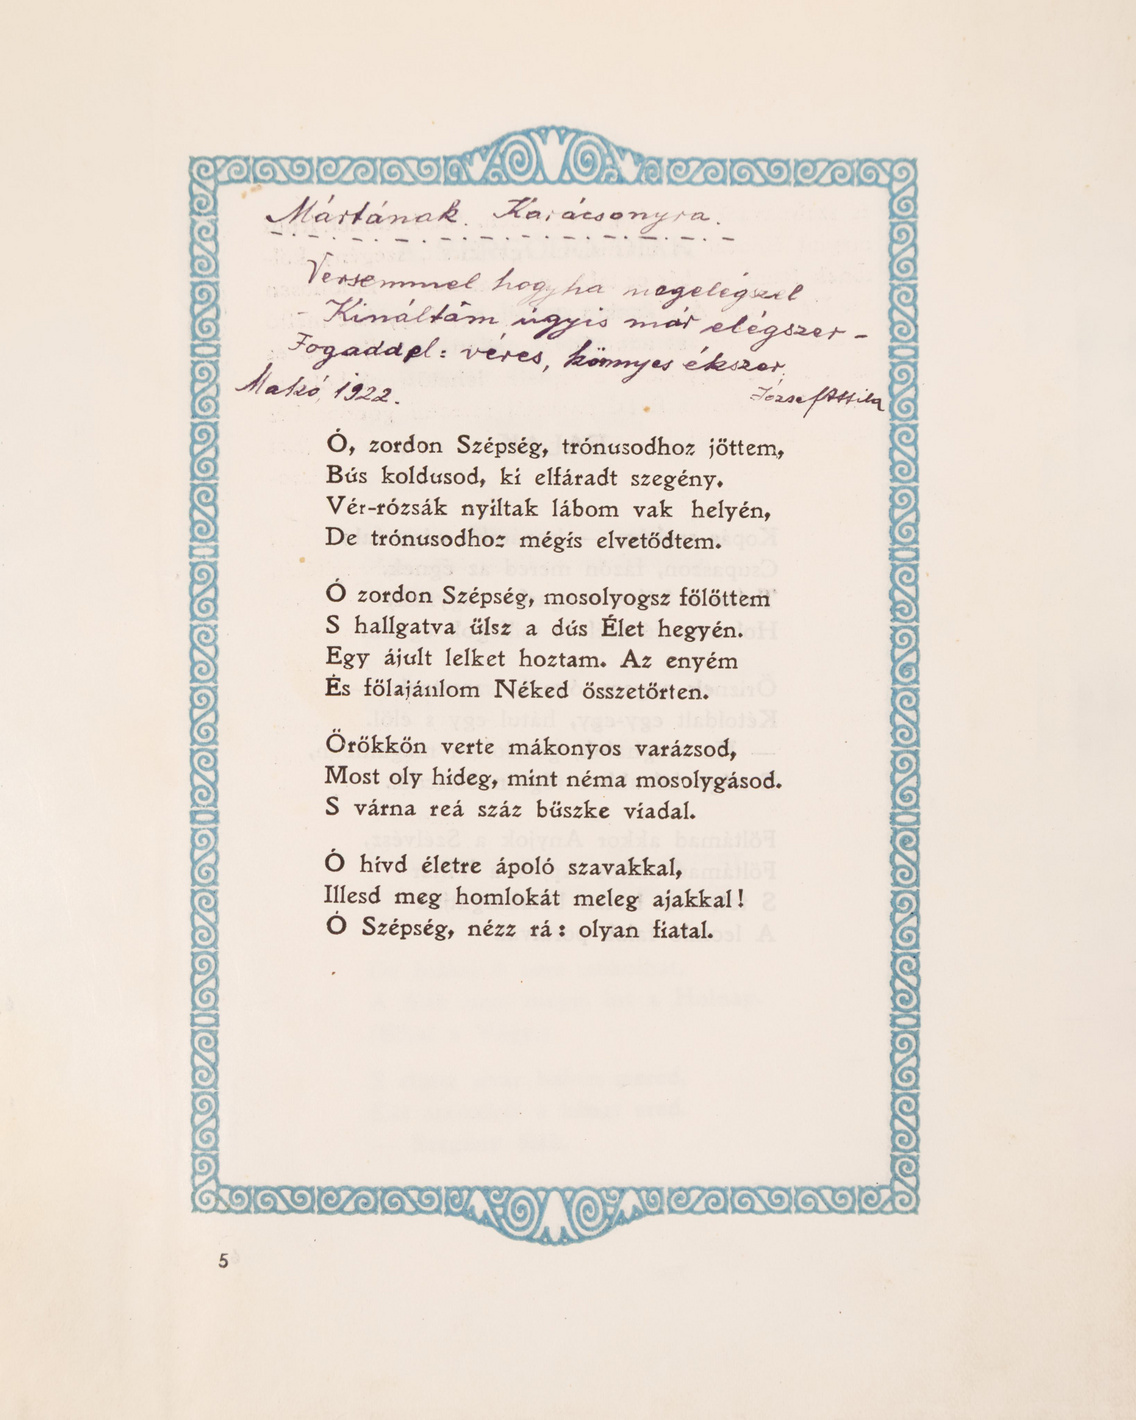 Mártának. Karácsonyra.
Versemmel hogyha megelégszel
- Kináltam úgyis már elégszer -
Fogadd el: véres, könnyes ékszer.
Makó, 1922. József Attila
Ó, zordon Szépség, trónusodhoz jöttem,
Bús koldusod, ki elfáradt szegény.
Vér-rózsák nyíltak lábom vak helyén,
De trónusodhoz mégis elvetődtem.
Ó zordon Szépség, mosolyogsz fölöttem
S hallgatva ülsz a dús Élet hegyén.
Egy ájult lelket hoztam. Az enyém
És fölajánlom Néked összetörten.
Örökkön verte mákonyos varázsod,
Most oly hideg, mint néma mosolygásod.
S várna reá száz büszke viadal.
Ó hívd életre ápoló szavakkal,
Illesd meg homlokát meleg ajakkal!
Ó Szépség, nézz rá: olyan fiatal.
5